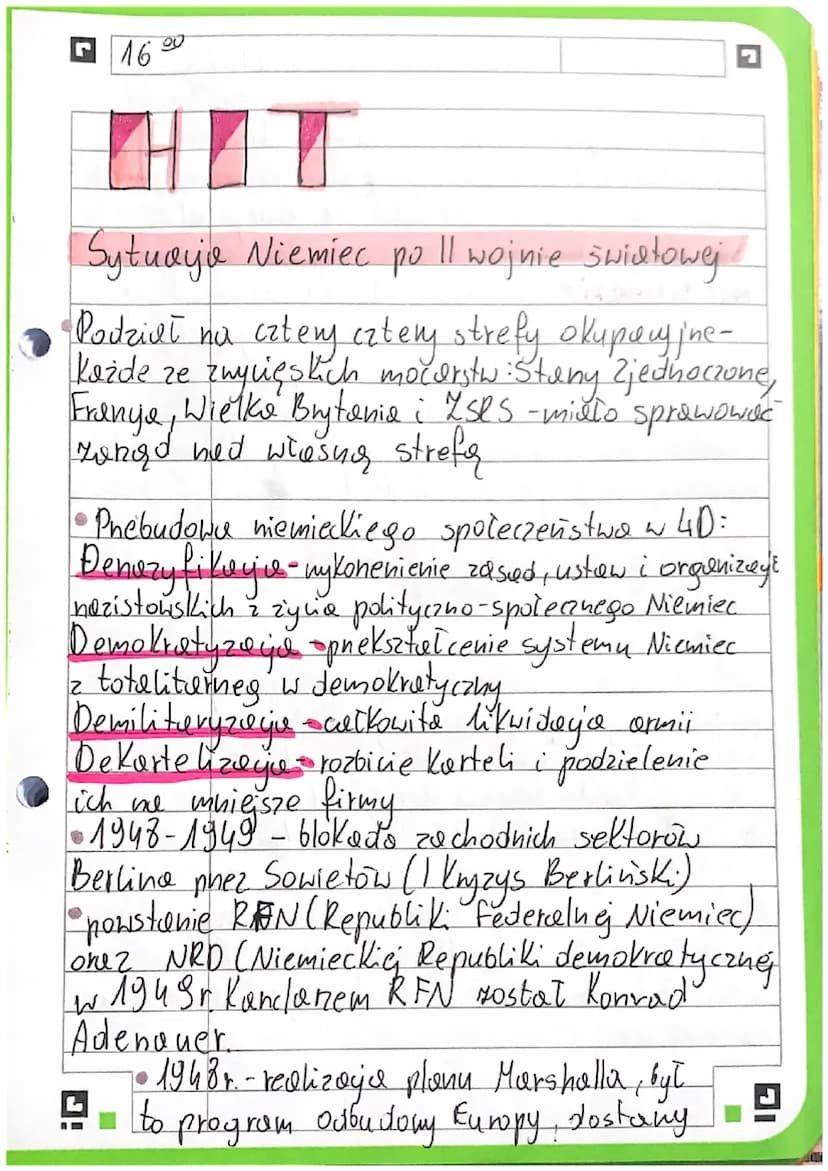 16 00
HIT
Sytuacja Niemiec po II wojnie światowej
Podział na cztery cztery strefy okupacyjne-
każde ze zwycięskich mocarstw: Stany Zjednoczone,
Francja, Wielka Brytania i ZSRS - miało sprawować
zarząd nad własną strefą
Przebudowa niemieckiego społeczeństwa w 4D:
Denazyfikacja - wykorzenienie zasad, ustaw i organizacji
nazistowskich z życia polityczno-społecznego Niemiec
Demokratyzacja - przekształcenie systemu Niemiec
z totalitarneg w demokratyczny
Demilitaryzacja - całkowita likwidacja armii
Dekartelizacja - rozbicie karteli i podzielenie
ich na mniejsze firmy
1948-1949 - blokada zachodnich sektorów
Berlina przez Sowietów (I Kryzys Berliński)
powstanie RFN (Republiki Federalnej Niemiec)
oraz NRD (Niemieckiej Republiki demokratycznej
w 1949r. Kanclerzem RFN został Konrad
Adenauer.
1948r. - realizacja planu Marshalla, był
to program odbudowy Europy, dostany